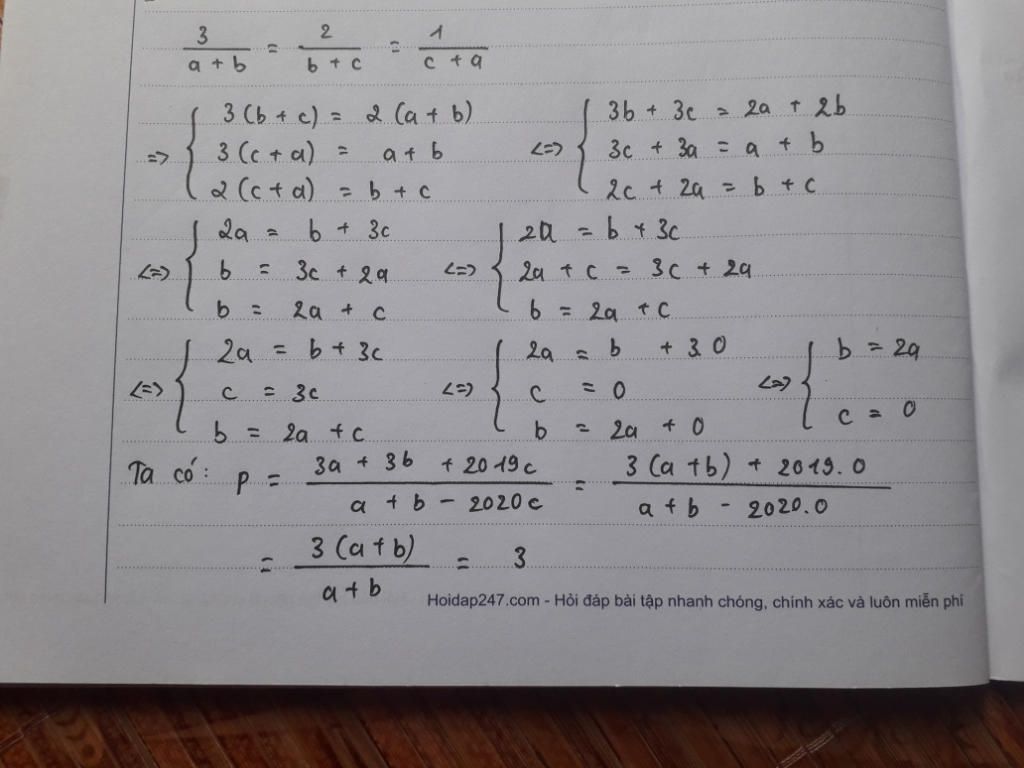 3/(a + b) = 2/(b + c) = 1/(c + a)
=> { 3(b + c) = 2(a + b) <=> { 3b + 3c = 2a + 2b
3(c + a) = a + b 3c + 3a = a + b
2(c + a) = b + c 2c + 2a = b + c
<=> { 2a = b + 3c <=> { 2a = b + 3c
b = 3c + 2a 2a + c = 3c + 2a
b = 2a + c b = 2a + c
<=> { 2a = b + 3c <=> { 2a = b + 3.0 <=> { b = 2a
c = 3c c = 0 c = 0
b = 2a + c b = 2a + 0
Ta có: P = (3a + 3b + 2019c)/(a + b - 2020c) = (3(a + b) + 2019.0)/(a + b - 2020.0)
= 3(a + b)/(a + b) = 3
Hoidap247.com - Hỏi đáp bài tập nhanh chóng, chính xác và luôn miễn phí